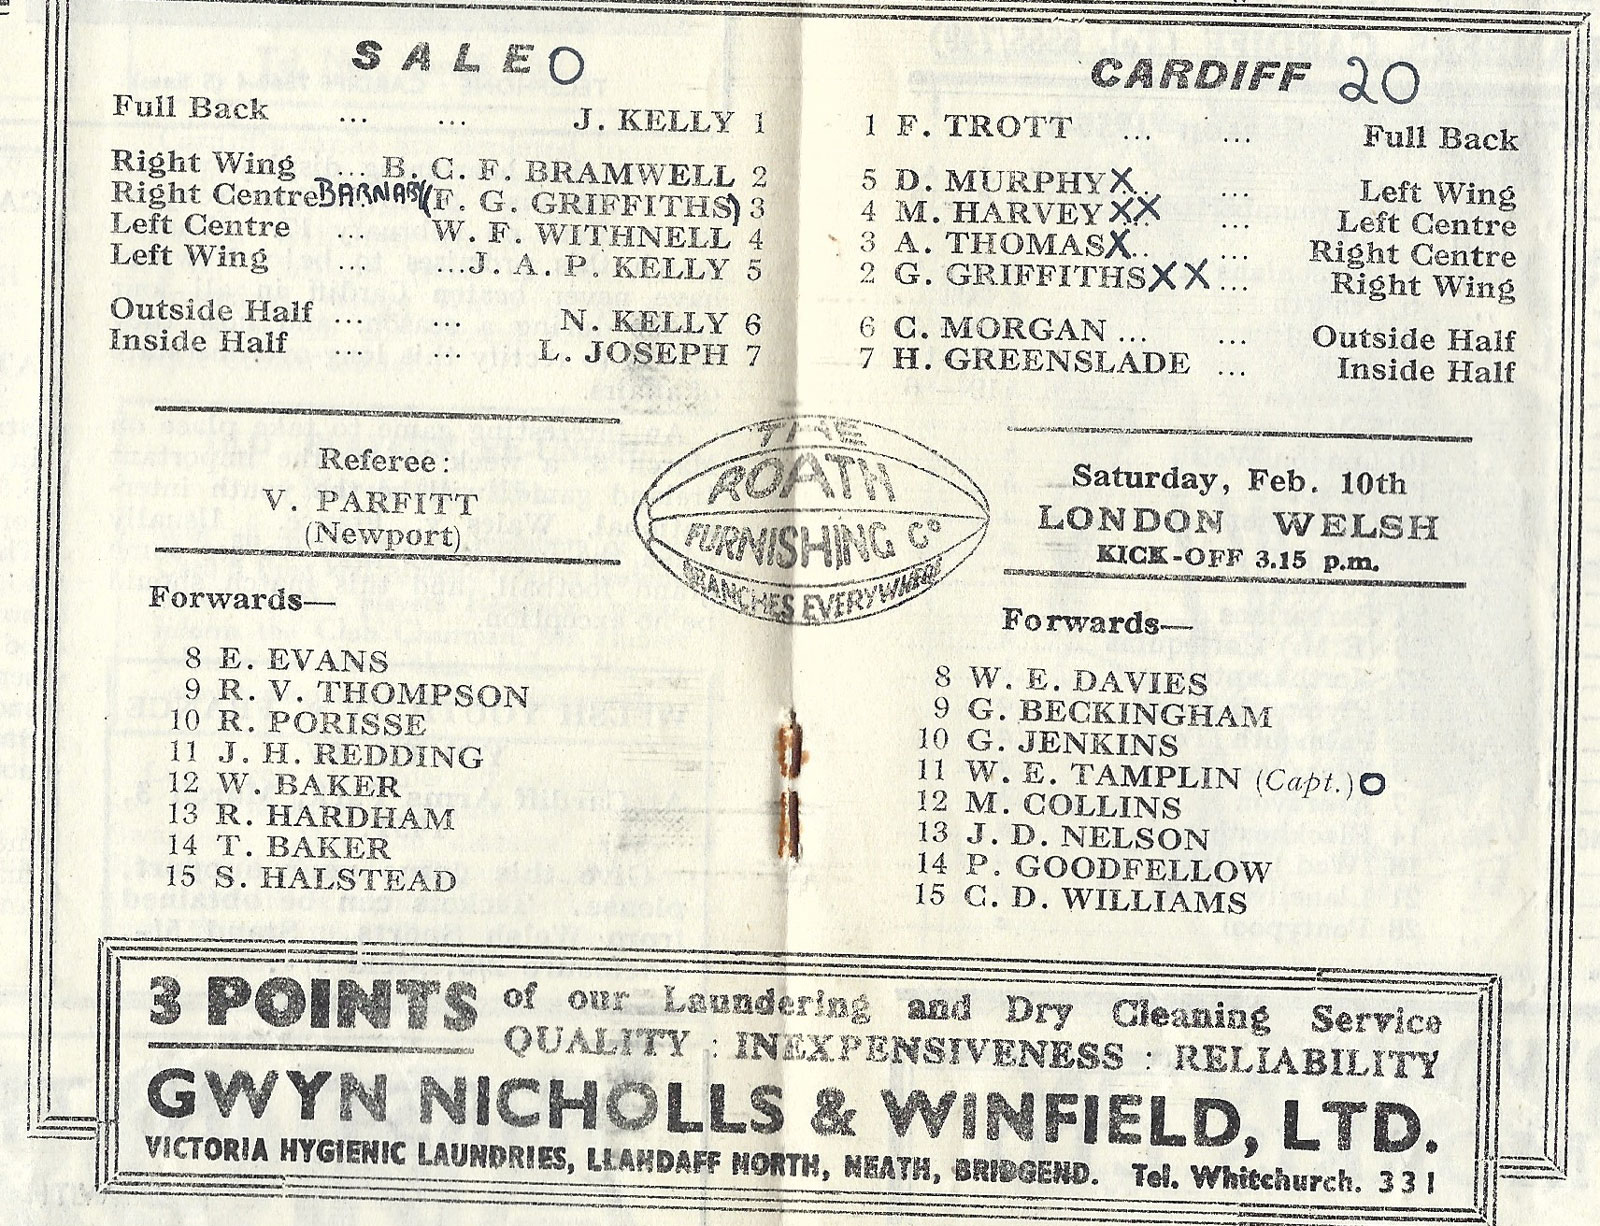 SALE 0
Full Back ... ... J. KELLY 1
Right Wing ... B. C. F. BRAMWELL 2
Right Centre BARNABY (F. G. GRIFFITHS) 3
Left Centre ... W. F. WITHNELL 4
Left Wing ... ... J. A. P. KELLY 5
Outside Half ... ... N. KELLY 6
Inside Half ... ... L. JOSEPH 7
Referee:
V. PARFITT
(Newport)
Forwards—
8 E. EVANS
9 R. V. THOMPSON
10 R. PORISSE
11 J. H. REDDING
12 W. BAKER
13 R. HARDHAM
14 T. BAKER
15 S. HALSTEAD
THE
ROATH
FURNISHING Co
BRANCHES EVERYWHERE
CARDIFF 20
1 F. TROTT ... ... Full Back
5 D. MURPHY X ... Left Wing
4 M. HARVEY XX ... Left Centre
3 A. THOMAS X ... Right Centre
2 G. GRIFFITHS XX ... Right Wing
6 C. MORGAN ... ... Outside Half
7 H. GREENSLADE ... Inside Half
Saturday, Feb. 10th
LONDON WELSH
KICK-OFF 3.15 p.m.
Forwards—
8 W. E. DAVIES
9 G. BECKINGHAM
10 G. JENKINS
11 W. E. TAMPLIN (Capt.) O
12 M. COLLINS
13 J. D. NELSON
14 P. GOODFELLOW
15 C. D. WILLIAMS
3 POINTS of our Laundering and Dry Cleaning Service
QUALITY : INEXPENSIVENESS : RELIABILITY
GWYN NICHOLLS & WINFIELD, LTD.
VICTORIA HYGIENIC LAUNDRIES, LLANDAFF NORTH, NEATH, BRIDGEND. Tel. Whitchurch. 331